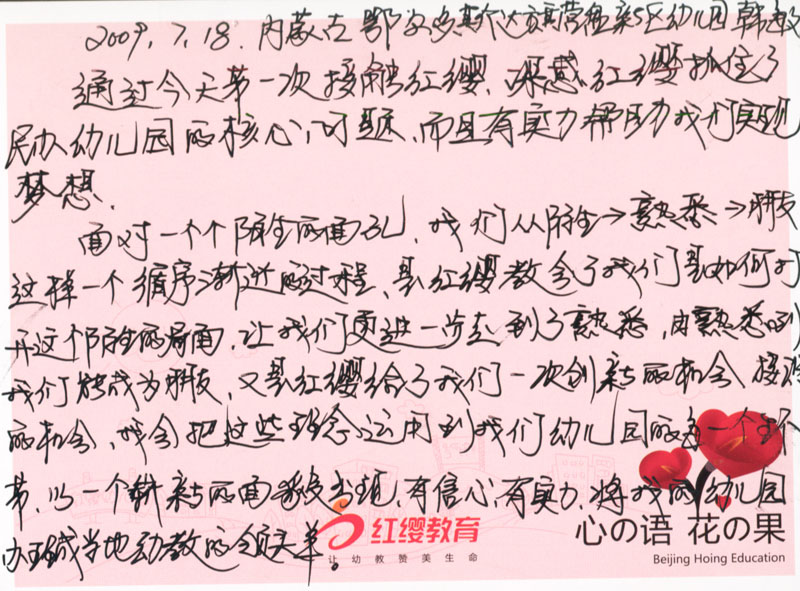 2009.7.18. 内蒙古鄂尔多斯达拉特营盘新区幼儿园韩
通过今天第一次接触红缨、深感红缨抓住了
民办幼儿园的核心问题、而且有实力帮助我们实现
梦想.
面对一个个陌生的面孔, 我们从陌生→熟悉→朋友
这样一个循序渐进的过程, 是红缨教会了我们是如何打
开这个陌生的局面, 让我们更进一步走到了熟悉, 由熟悉到
我们能成为朋友, 又是红缨给了我们一次创新的机会
的机会, 我会把这些理念运用到我们幼儿园的每一个环
节, 以一个崭新的面貌出现, 有信心, 有实力, 将我的幼儿园
办成当地幼教的领头羊。
红缨教育
让幼教赞美生命
心の语 花の果
Beijing Hoing Education